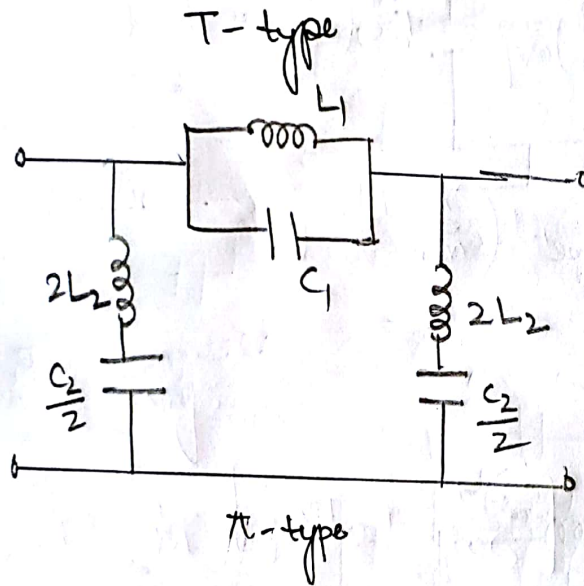 T-type
L1
C1
2L2
C2/2
2L2
C2/2
π-type